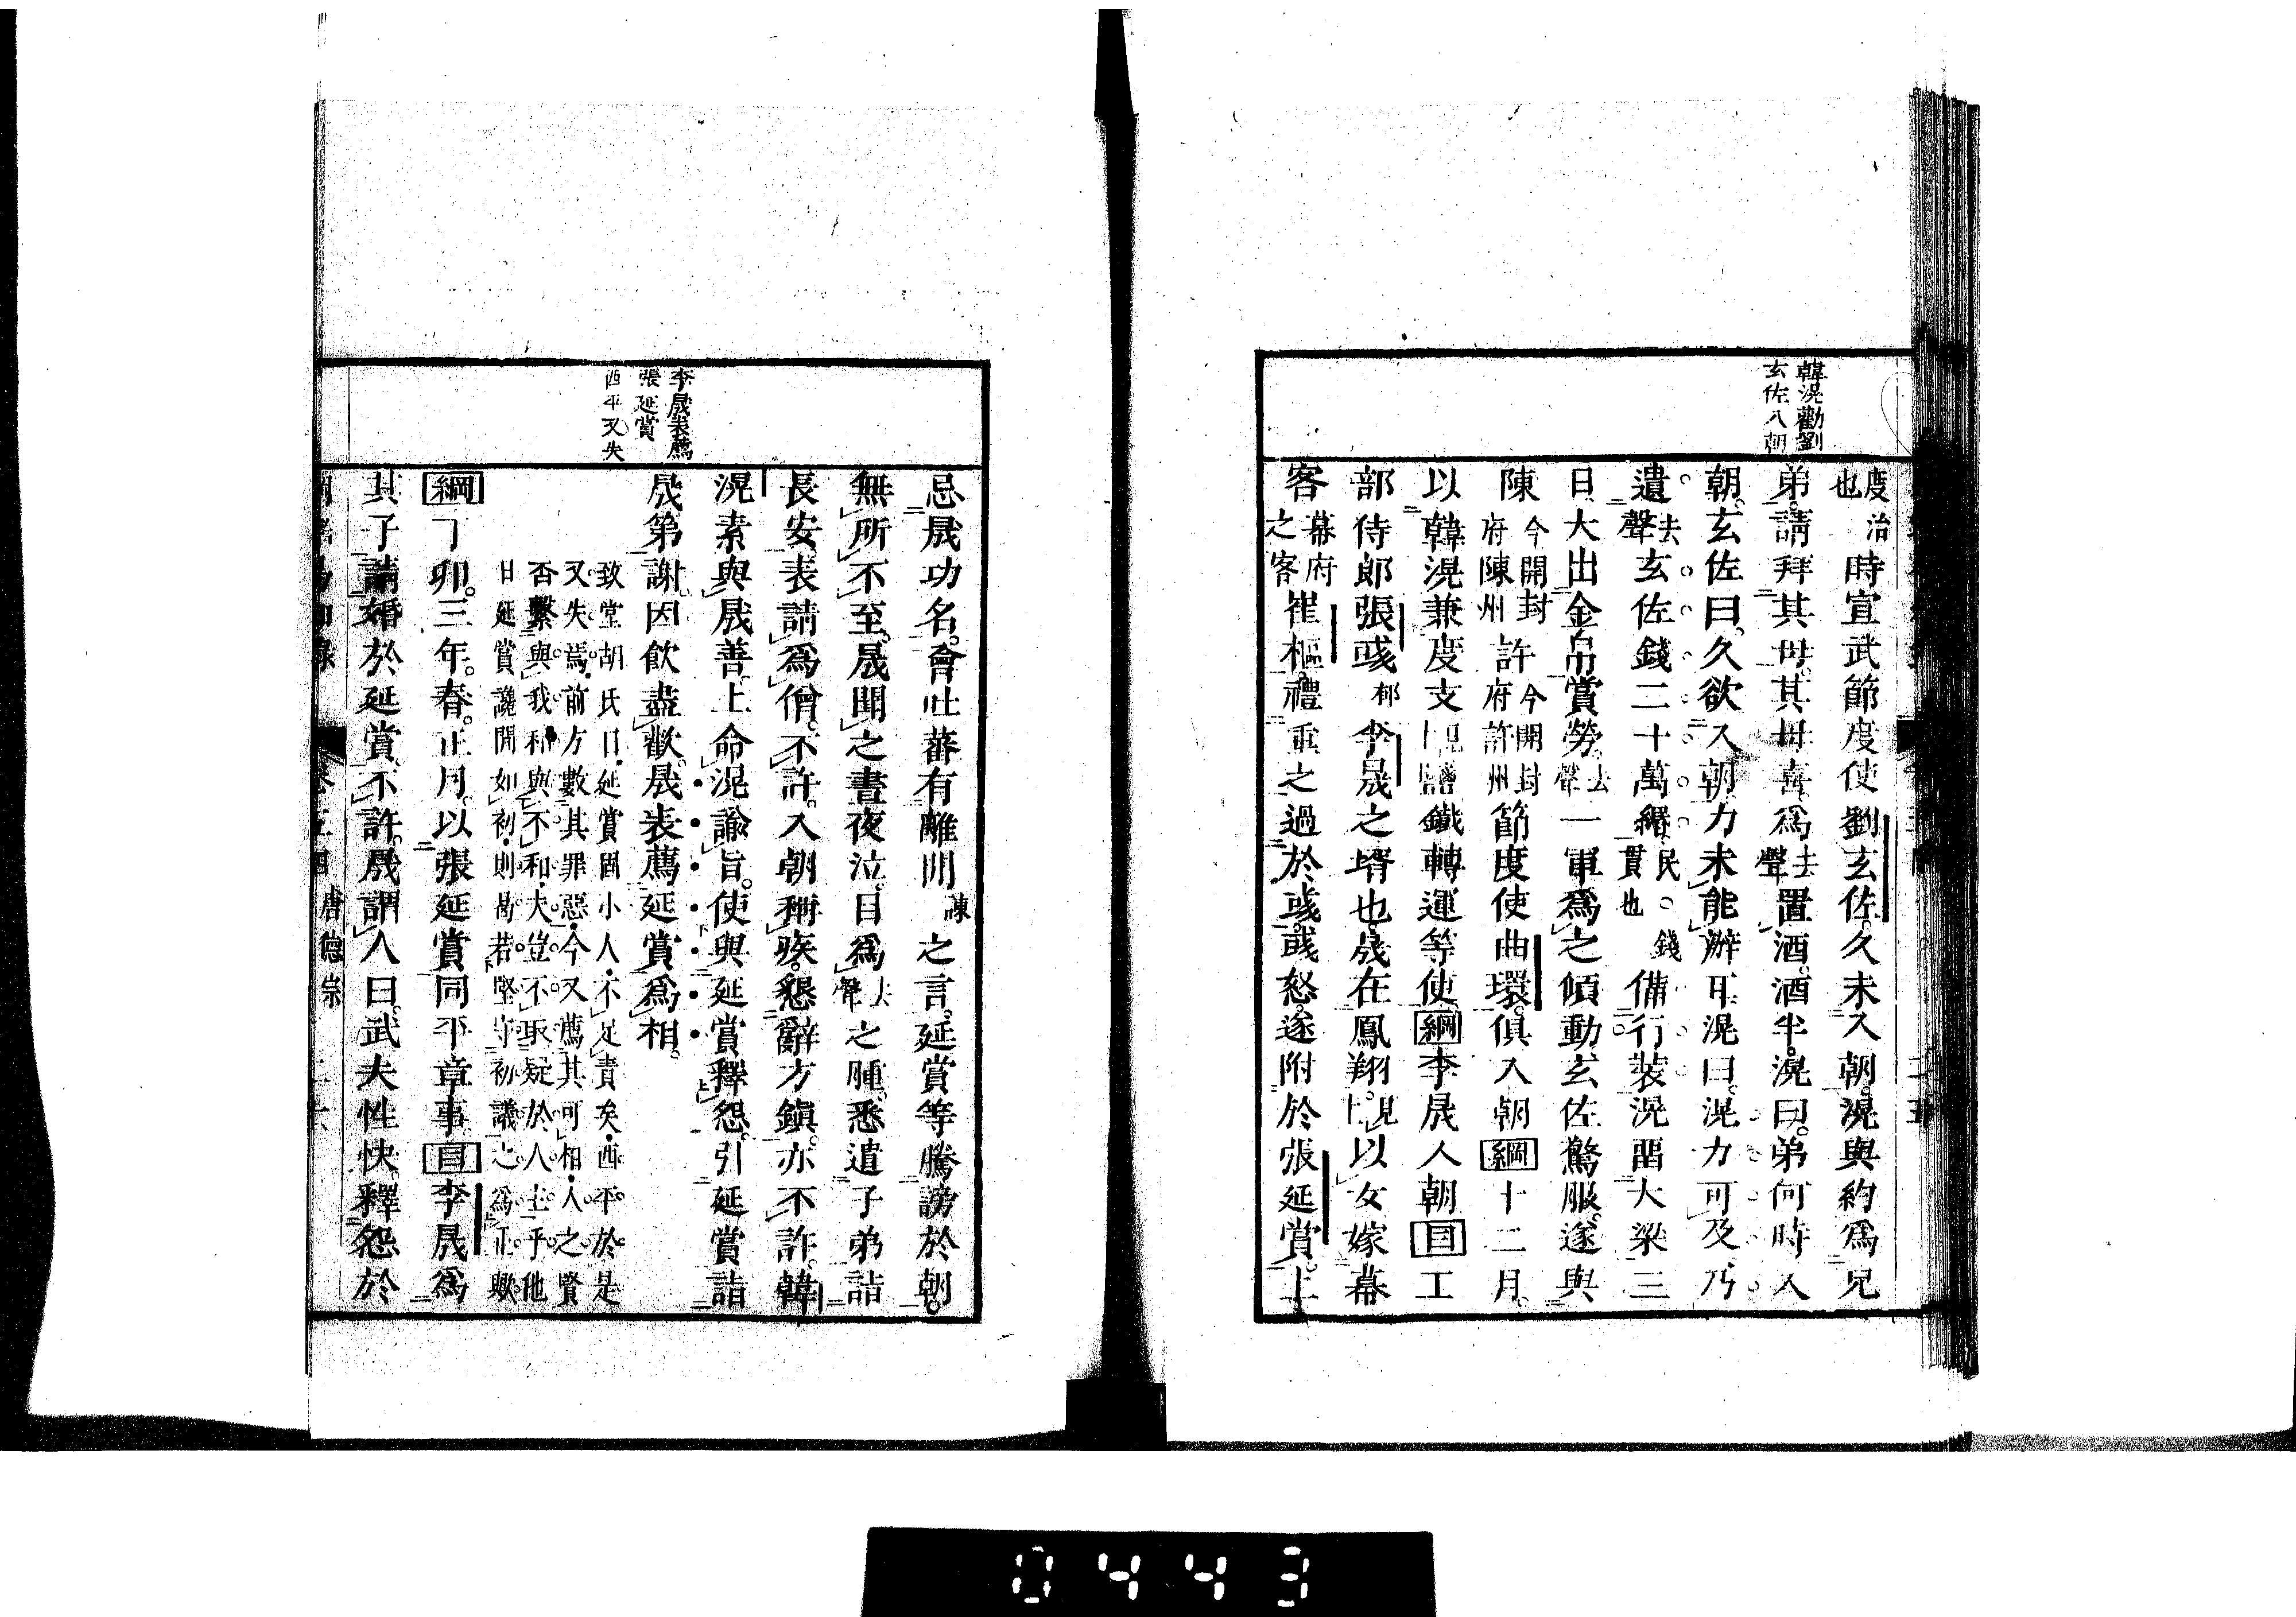 韓滉勸劉
玄佐入朝
度治也時宣武節度使劉玄佐。久未入朝。滉與約爲兄
弟。請拜其母。其母喜。爲去聲置酒。酒半。滉曰。弟何時入
朝。玄佐曰。久欲入朝。力未能辦耳。滉曰。滉力可及。乃
遺去聲玄佐錢二十萬緡民錢貫也備行裝。滉留大梁三
日。大出金帛賞勞去聲。一軍爲之傾動。玄佐驚服。遂與
陳今開封府陳州許今開封府許州節度使曲環。俱入朝綱十二月。
以韓滉兼度支鹽鐵轉運等使綱李晟入朝目工
部侍郎張彧郁李晟之壻也。晟在鳳翔。上見以女嫁幕
客幕府之客崔樞。禮重之過於彧。彧怒。遂附於張延賞。上
李晟表薦
張延賞
西平又失
忌晟功名。會吐蕃有離間諫之言。延賞等騰謗於朝。
無所不至。晟聞之晝夜泣。目爲去聲之腫。悉遣子弟詣
長安。表請爲僧。不許。入朝稱疾。懇辭方鎮。亦不許。韓
滉素與晟善。上命滉諭旨。使與延賞釋怨。引延賞詣
晟第謝。因飲盡歡。晟表薦延賞爲相。
致堂胡氏曰。延賞固小人。不足責矣。西平於是
又失焉。前方數其罪惡。今又薦其可相。人之賢
否。繫與我和與不和。夫豈不取疑於人主乎。他
日延賞讒間如初。則曷若堅守初議之爲正歟。
綱丁卯。三年。春。正月。以張延賞同平章事目李晟爲
其子請婚於延賞。不許。晟謂人曰。武夫性快。釋怨於
唐德宗